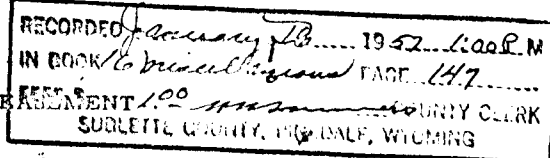 RECORDED January 1952 1:00 P. M
IN BOOK 16 Miscellaneous PAGE 147
FEES $ 1.00 COUNTY CLERK
EASEMENT
SUBLETTE COUNTY, PINEDALE, WYOMING